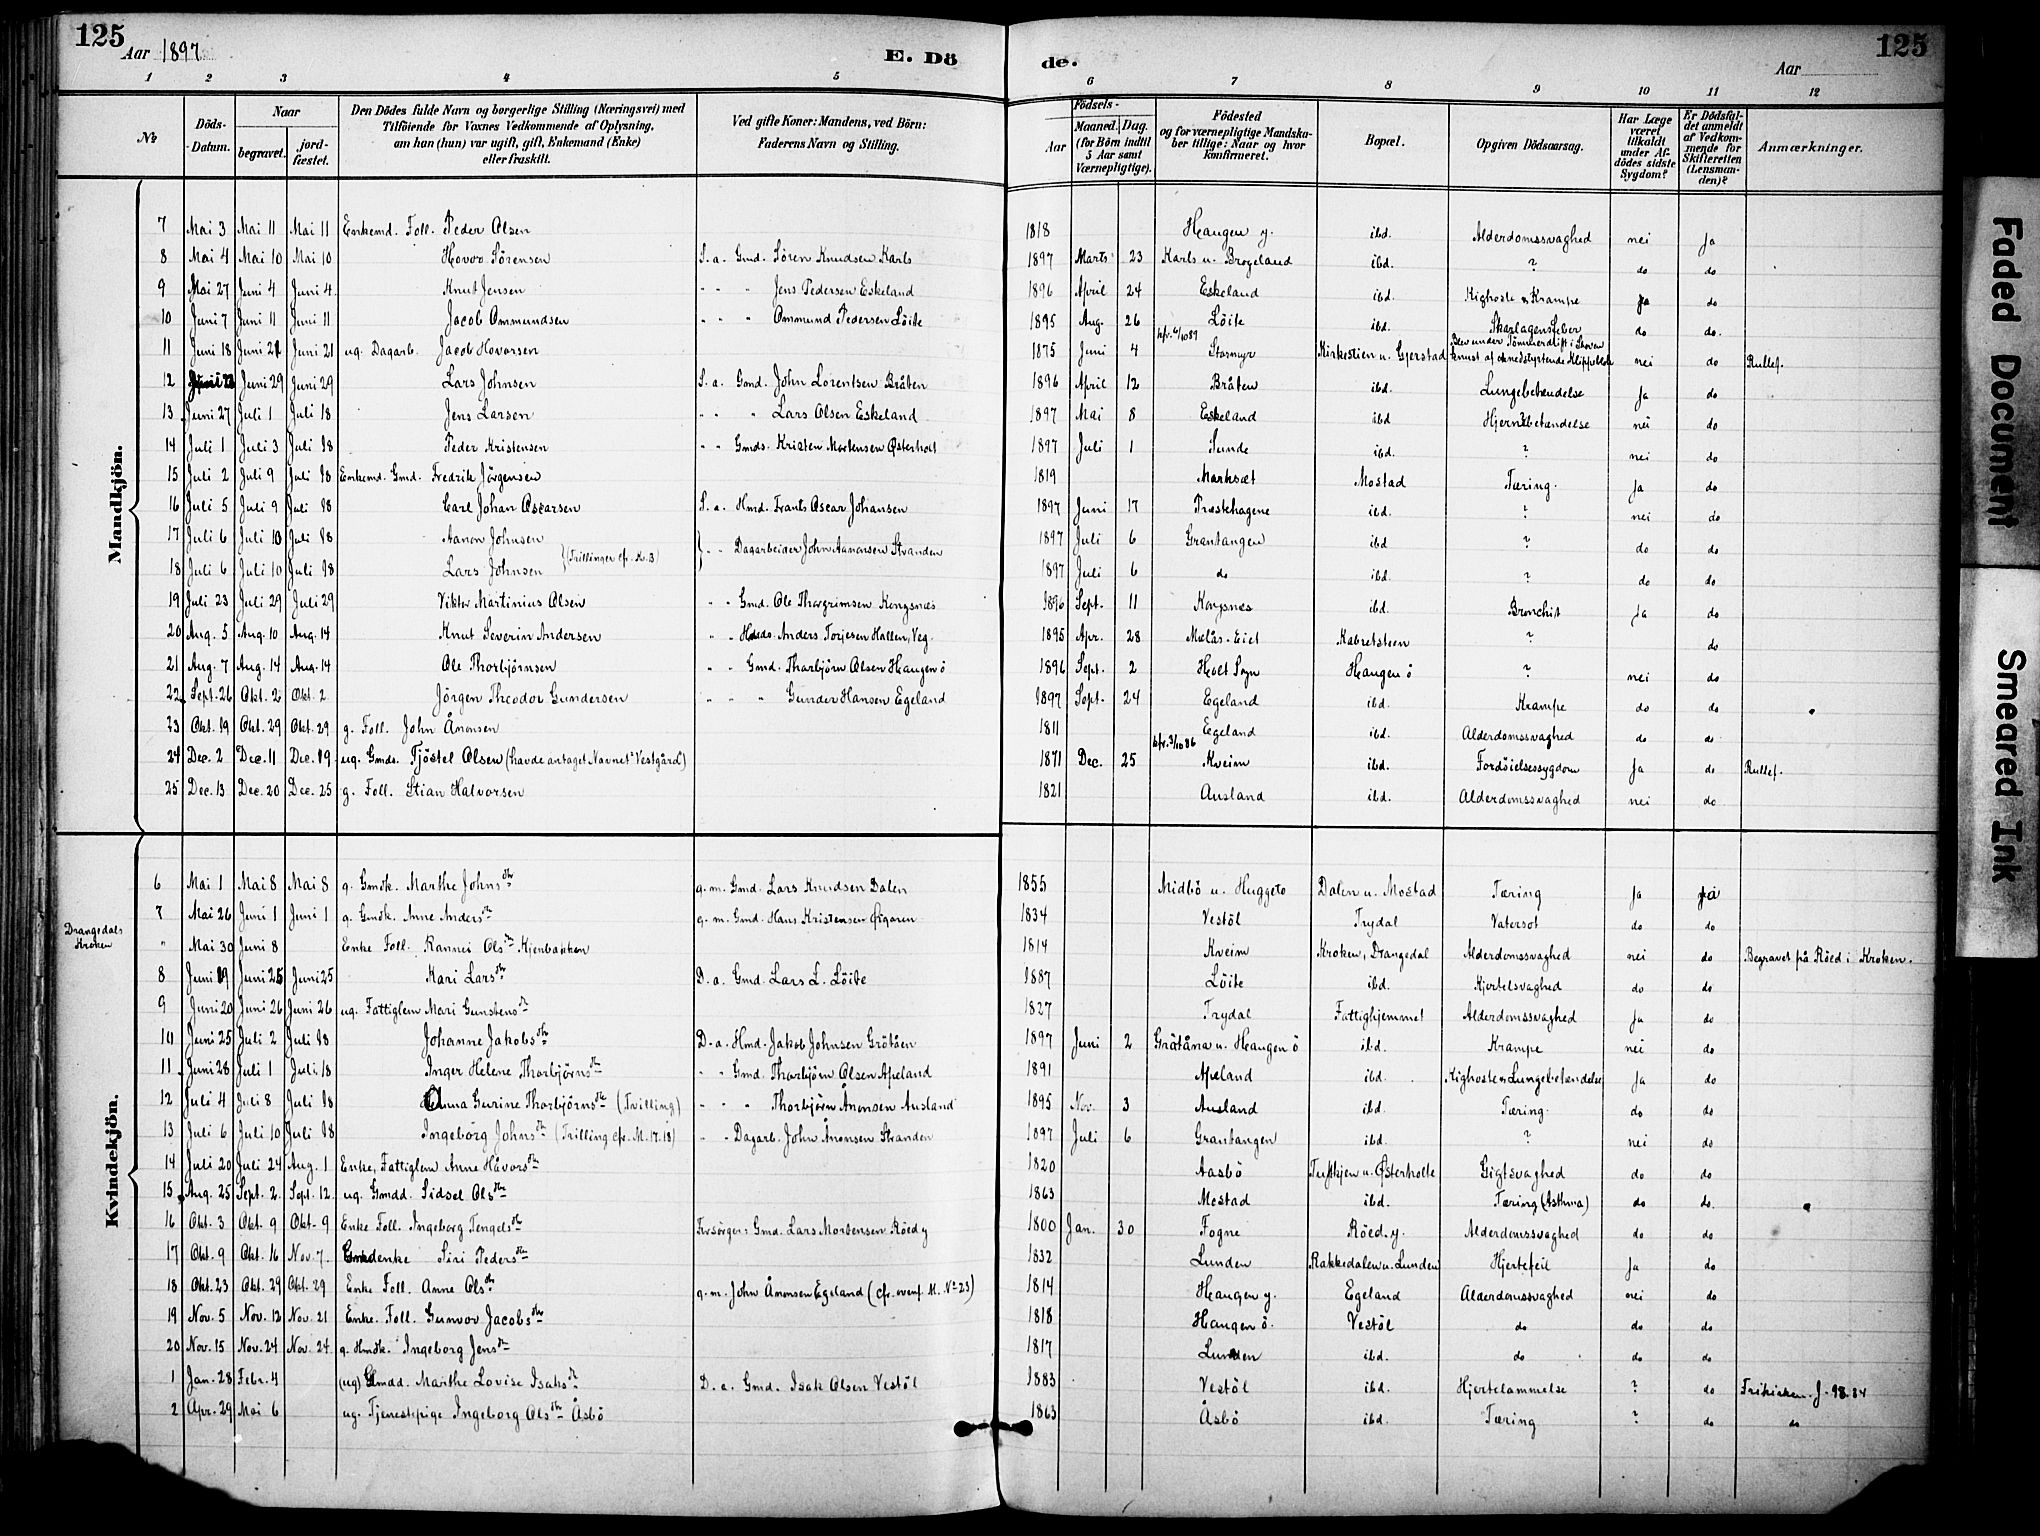 125
Aar 1897
E. Dö
de.
Aar
125
1 2 3 4 5 6 7 8 9 10 11 12
№
Döds-Datum.
Naar
begravet.
jord-fæstet.
Den Dödes fulde Navn og borgerlige Stilling (Næringsvei) med
Tilföiende for Voxnes Vedkommende af Oplysning,
om han (hun) var ugift, gift, Enkemand (Enke)
eller fraskilt.
Ved gifte Koner: Mandens, ved Börn:
Faderens Navn og Stilling.
Födsels-
Aar
Maaned. Dag.
(for Börn indtil
5 Aar samt
Værnepligtige).
Födested
og for værnepligtige Mandska-
ber tillige: Naar og hvor
konfirmeret.
Bopæl.
Opgiven Dödsaarsag.
Har Læge
været
tilkaldt
under Af-
dödes sidste
Sygdom?
Er Dödsfal-
det anmeldt
af Vedkom-
mende for
Skifteretten
(Lensman-
den)?
Anmærkninger.
Mandkjön.
7 Mai 3 Mai 11 Mai 11 Enkemd. Foll. Peder Olsen 1818 Haugen y. ibd. Alderdomssvaghed nei Ja
8 Mai 4 Mai 10 Mai 10 Hovor Sörensen S. a. Gmd. Sören Knudsen Karls 1897 Marts 23 Karls u. Brogeland ibd. ? do do
9 Mai 27 Juni 4 Juni 4 Knut Jensen " " " Jens Pedersen Eskeland 1896 April 24 Eskeland ibd. Kighoste & Krampe Ja do
10 Juni 7 Juni 11 Juni 11 Jacob Ommundsen " " " Ommund Pedersen Löite 1895 Aug. 26 Löite ibd. Skarlagensfeber do do.
11 Juni 18 Juni 21 Juni 21 ug. Dagarb. Jacob Hovorsen 1875 Juni 4 kfr. 6/10 89 Stasmyr Kirkestien u. Gjerstad Blev under Tömmerdrift i Skoven knust af nedstyrtende Klippeblok nei do Rullef.
12 Juni 23 Juni 29 Juni 29 Lars Johnsen S. a. Gmd. John Lorentsen Bråten 1896 April 12 Bråten ibd. Lungebetændelse Ja do
13 Juni 27 Juli 1 Juli 18 Jens Larsen " " " Lars Olsen Eskeland 1897 Mai 8 Eskeland ibd Hjernebetændelse nei do
14 Juli 1 Juli 3 Juli 18 Peder Kristensen " " Gmds. Kristen Mortensen Østerholt 1897 Juli 1 Sunde ibd. ? nei do
15 Juli 2 Juli 9 Juli 18 Enkemd. Gmd. Fredrik Jörgensen 1819 Marksæt Mostad Tæring. Ja do
16 Juli 5 Juli 9 Juli 18 Carl Johan Oscarsen S. a. Hmd. Frants Oscar Johansen 1897 Juni 17 Præstehagene ibd. ? nei do
17 Juli 6 Juli 10 Juli 18 Aanon Johnsen } (Trillinger cfr. K. 3) } " " Dagarbeider John Aanonsen Stranden 1897 Juli 6 Grantangen ibd ? do do
18 Juli 6 Juli 10 Juli 18 Lars Johnsen 1897 Juli 6 do ibd. ? do do
19 Juli 23 Juli 29 Juli 29 Viktor Martinius Olsen " " Gmd. Ole Thorgrimsen Kongsnæs 1896 Sept. 11 Kongsnæs ibd. Bronchit Ja do
20 Aug. 5 Aug. 10 Aug. 14 Knut Severin Andersen " " Anders Torjesen Hallen, Veg. 1895 Apr. 28 Melås-Eiet Kabretsteen ? do
21 Aug. 7 Aug. 14 Aug. 14 Ole Thorbjörnsen " " Gmd. Thorbjörn Olsen Haugen ö 1896 Sept. 2 Holt Sogn Haugen ö ? nei do
22 Sept. 26 Okt. 2 Okt. 2 Jörgen Theodor Gundersen " " " Gunder Hansen Egeland 1897 Sept. 24 Egeland ibd. Krampe do do
23 Okt. 19 Okt. 29 Okt. 29 g. Foll. John Ånonsen 1811 Egeland ibd. Alderdomssvaghed do do
24 Dec. 2 Dec. 11 Dec. 19 ug. Gmds. Tjöstel Olsen (havde antaget Navnet "Vestgård") 1871 Dec. 25 kfr. 3/10 86 Kveim ibd. Fordöielsessygdom Ja do Rullef.
25 Dec. 13 Dec. 20 Dec. 25 g. Foll. Stian Halvorsen 1821 Ausland ibd. Alderdomssvaghed nei do
Kvindekjön.
6 Mai 1 Mai 8 Mai 8 g. Gmdk. Marthe Johnsdtr g. m. Gmd. Lars Knudsen Dalen 1855 Midbö u. Huggeto Dalen u. Mostad Tæring Ja ja
7 Mai 26 Juni 1 Juni 1 g. Gmdk. Anne Andersdtr g. m. Gmd. Hans Kristensen Øigaren 1834 Vestöl Trydal Vatersot do do
Drangedals
Kroken
" Mai 30 Juni 8 Enke Foll. Rannei Olsdtr Kjenbakken 1814 Kveim Kroken, Drangedal Alderdomssvaghed nei do Begravet på Röed i Kroken.
8 Juni 19 Juni 25 Juni 25 Kari Larsdtr D. a. Gmd. Lars L. Löite 1887 Löite ibd. Kjertelsvaghed do do
9 Juni 20 Juni 26 Juni 26 ug. Fattiglem Mari Gunstensdtr 1827 Trydal Fattighjemmet Alderdomssvaghed Ja do
10 Juni 25 Juli 2 Juli 18 Johanne Jakobsdtr D. a. Hmd. Jakob Johnsen Grötåen 1897 Juni 2 Gråtåna u. Haugen ö ibd. Krampe nei do
11 Juni 28 Juli 1 Juli 18 Inger Helene Thorbjörnsdtr " " Gmd. Thorbjörn Olsen Apeland 1891 Apeland ibd. Kighoste & Lungebetændelse Ja do
12 Juli 4 Juli 8 Juli 18 Anna Gurine Thorbjörnsdtr (Tvilling) " " " Thorbjörn Ånonsen Ausland 1895 Nov. 3 Ausland ibd. Tæring. do do
13 Juli 6 Juli 10 Juli 18 Ingebörg Johnsdtr (Trilling cfr. M. 17. 18) " " Dagarb. John Ånonsen Stranden 1897 Juli 6 Grantangen ibd. ? nei do
14 Juli 20 Juli 24 Aug. 1 Enke, Fattiglem Anne Håvorsdtr 1820 Aasbö u. Østerholte Gigtsvaghed do do
15 Aug. 25 Sept. 2 Sept. 12 ug. Gmdd. Sidsel Olsdtr 1863 Mostad ibd. Tæring (Asthma) do do.
16 Okt. 3 Okt. 9 Okt. 9 Enke Foll. Ingeborg Tengelsdtr Forsörger: Gmd. Lars Mortensen Röed y 1800 Jan. 30 Fogne Röed. y. Alderdomssvaghed do do
17 Okt. 9 Okt. 16 Nov. 7 Gmdenke Siri Pedersdtr 1832 Lunden Rakkedalen u. Lunden Hjertefeil Ja do
18 Okt. 23 Okt. 29 Okt. 29 Enke Foll. Anne Olsdtr g. m. John Ånonsen Egeland (cfr. ovenf. M. № 23) 1814 Haugen y. Egeland Alderdomssvaghed nei do
19 Nov. 5 Nov. 12 Nov. 21 Enke. Foll. Gunvor Jacobsdtr 1818 Haugen ö. Vestöl do do do
20 Nov. 15 Nov. 24 Nov. 24 g. Hmdk. Ingeborg Jensdtr 1817 Lunden ibd. do do do
1 Jan. 28 Febr. 4 (ug) Gmdd. Marthe Lovise Isaksdtr D. a. Gmd. Isak Olsen Vestöl 1883 Vestöl ibd. Hjertelammelse ? do Frikirken. J. 98. 34
2 Apr. 29 Mai 6 ug. Tjenestepige Ingeborg Olsdtr Åsbö 1863 Åsbö ibd. Tæring ? do do
Faded Document
Smeared Ink